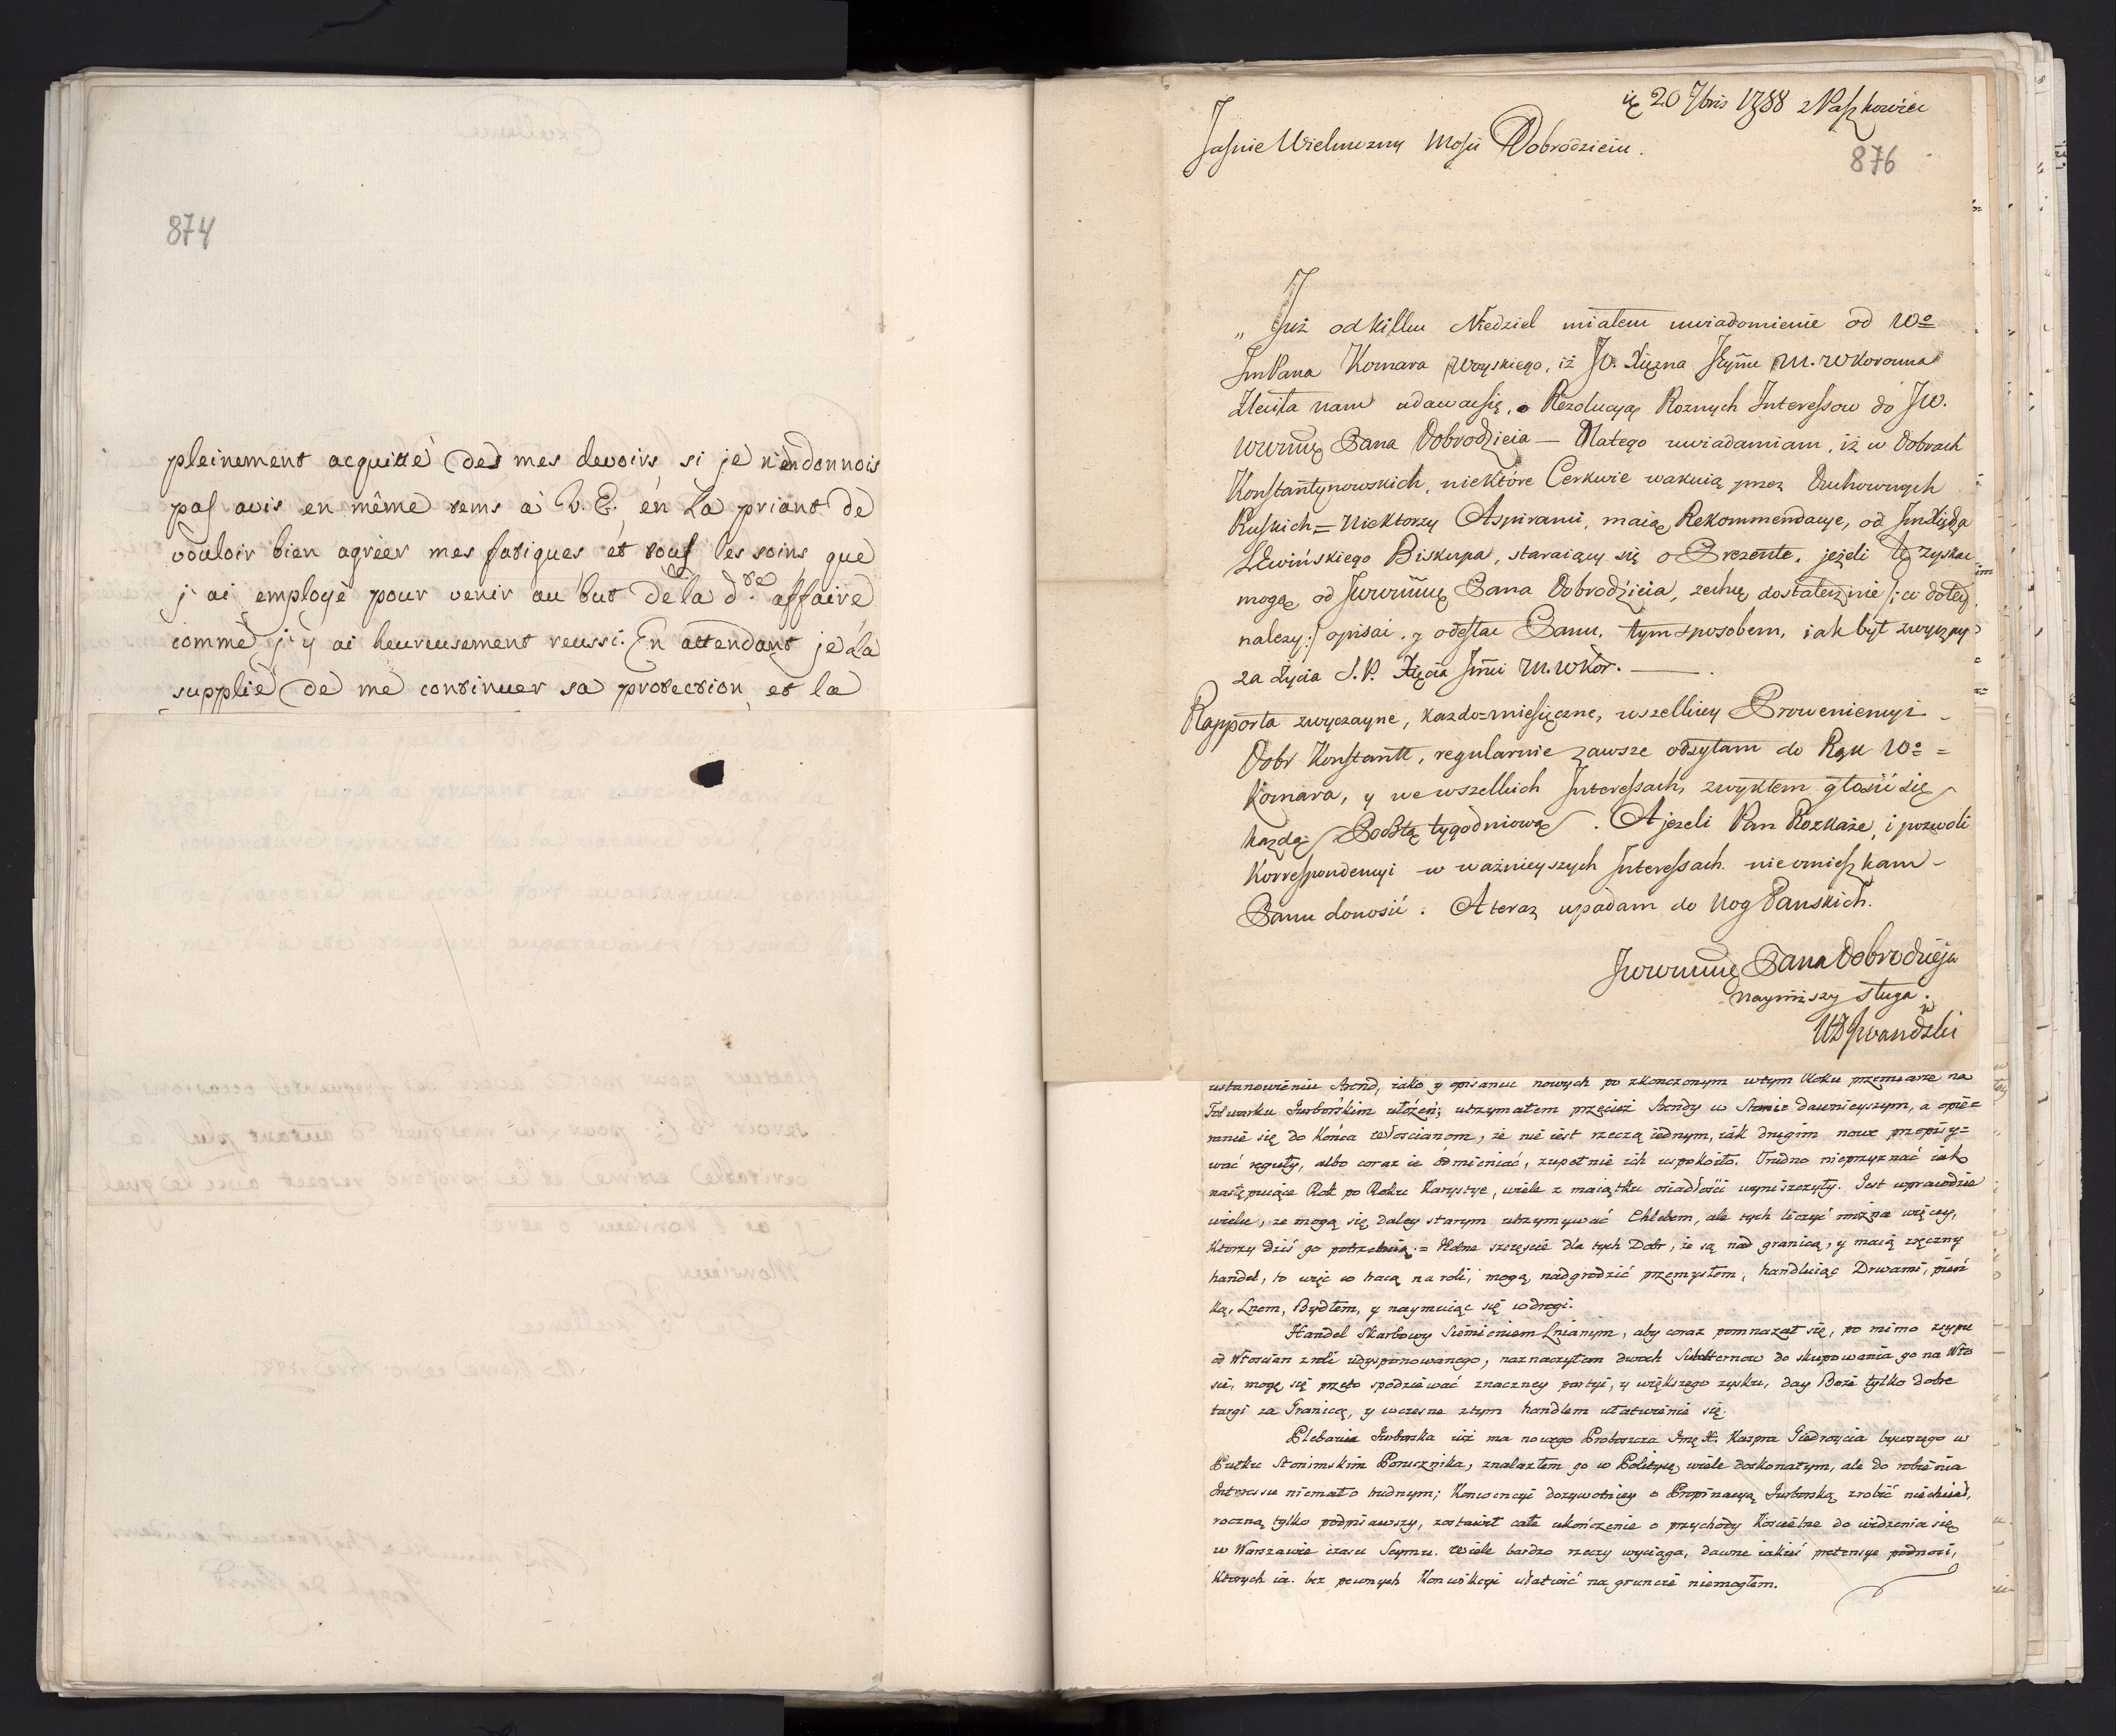 874
pleinement acquitté des mes devoirs si je n'en donnois
pas avis en même tems à V. E. én La priant de
vouloir bien agrèer mes fatigues et tous les soins que
j'ai employé pour venir au but de la d.te affaire
comme j'y ai heureusement reussi. En attendant je La
supplie de me continuer sa protection et la
20 7bris 1788 z Paszkowiec
Jaśnie Wielmozny Mości Dobrodzieiu.
876
Już od killku Niedziel miałem uwiadomienie od Wo
ImPana Komara Woyskiego, iż JO. Xiężna Jeymć M. W Koronna
Zleciła nam udawać się, o Rezolucyą Roznych Interessow do JW.
Pana Dobrodzieia — Dlatego uwiadamiam, iż w Dobrach
Konstantynowskich, niektóre Cerkwie wakuią przez Duchownych
Ruskich = Niektorzy Aspiranci, maią Rekommendacye, od ImXiędza
Lewińskiego Biskupa, staraiący się o Prezente, jeżeli tę zyskac
mogą od Pana Dobrodzieia, zechcę dostatecznie /: co do tey
nalezy :/ opisać, y odesłac Panu, tym sposobem, iak był zwyczay
za życia S. P. Xięcia Jmci M. W Kor. —
Rapporta zwyczayne, kazdo=miesięczne, wszelkiey Proweniencyi
Dobr Konstantt, regularnie zawsze odsyłam do Rąk Wo =
Komara, y we wszelkich Interessach, zwykłem głosić się
każdą Pocztą tygodniową. A jezeli Pan Rozkaże, i pozwoli
Korrespondencyi w ważnieyszych Interessach nie omieszkam
Panu donosić. A teraz upadam do Nog Panskich.
Pana Dobrodzieja
Nayniższy sługa.
ustanowieniu Arend, iako y opisaniu nowych po zkończonym w tym Roku przemiarze na
Folwarku Jurborskim ułożeń; utrzymałem przecież Arendy w Stanie dawnieyszym, a opie=
ranie się do Końca Włoscianom, że nie iest rzeczą iednym, iak drugim nowe przepisy=
wać reguły, albo coraz ie odmieniać, zupełnie ich uspokoiło. Trudno nieprzyznać iak
następuiące Rok po Roku Karystye, wiele z maiątku osiadłości wyniszczyły. Jest wprawdzie
wielu, ze mogą się daley starym utrzymywać Chlebem, ale tych liczyć można więcey,
Ktorzy dziś go potrzebuią. = Jedne szczęscie dla tych Dobr, że są nad granicą, y maią zręczny
handel, to więc co tracą na roli, mogą nadgrodzić przemysłem, handluiąc Drwami, pień
ką, Lnem, Bydłem, y naymuiąc się w drogi.
Handel Skarbowy Siemieniem Lnianym, aby coraz pomnazał się, po mimo zsypu
od Włoscian z roli udysponowanego, naznaczyłem dwoch Subalternow do skupowania go na Wło
sci, mogę się przeto spodziewać znaczney partyi, y większego zysku, day Boże tylko dobre
targi za Granicą, y wczesne z tym handlem ułatwienie się.
Plebania Jurborska iuż ma nowego Proboszcza Jmę X. Kaspra Giedroycia bywszego w
Pułku Słonimskim Porucznika, znalazłem go w Polityce wiele doskonałym, ale do robienia
Interessu niemało trudnym; Konwencyi dozywotniey o Propinacyą Jurborską zrobić niechciał,
roczną tylko podpisawszy, zostawił całe ukończenie o przychody Koscielne do widzenia się
w Warszawie czasu Seymu. Wiele bardzo rzeczy wyciąga, dawne iakieś pretensye podnosi,
Ktorych ia bez pewnych Konwikcyi ułatwić na gruncie niemogłem.